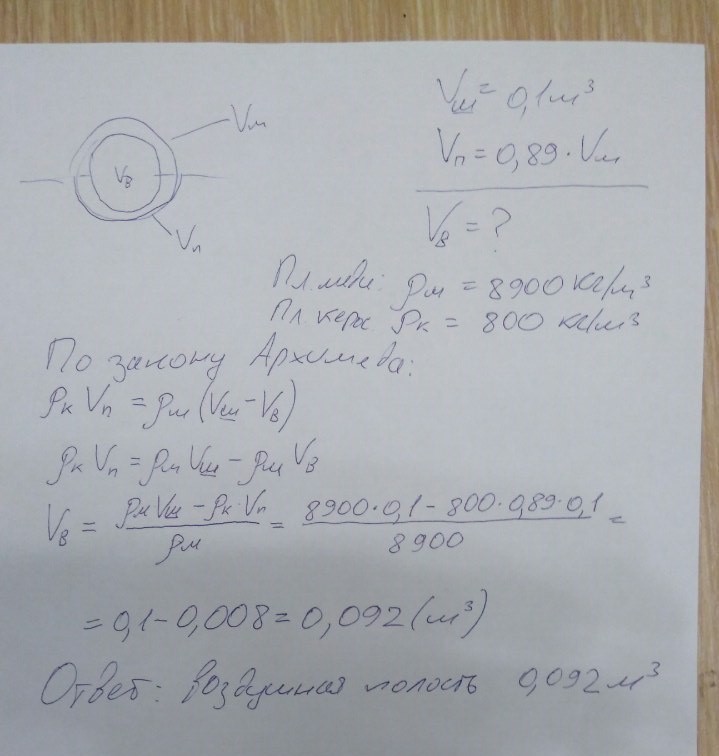 Vм
Vв
Vп
Vш = 0,1 м³
Vп = 0,89 · Vм
Vв = ?
Пл. меди: ρм = 8900 кг/м³
Пл. керос ρк = 800 кг/м³
По закону Архимеда:
ρк Vп = ρм (Vш - Vв)
ρк Vп = ρм Vш - ρм Vв
Vв = (ρм Vш - ρк · Vп) / ρм = (8900 · 0,1 - 800 · 0,89 · 0,1) / 8900 =
= 0,1 - 0,008 = 0,092 (м³)
Ответ: воздушная полость 0,092 м³